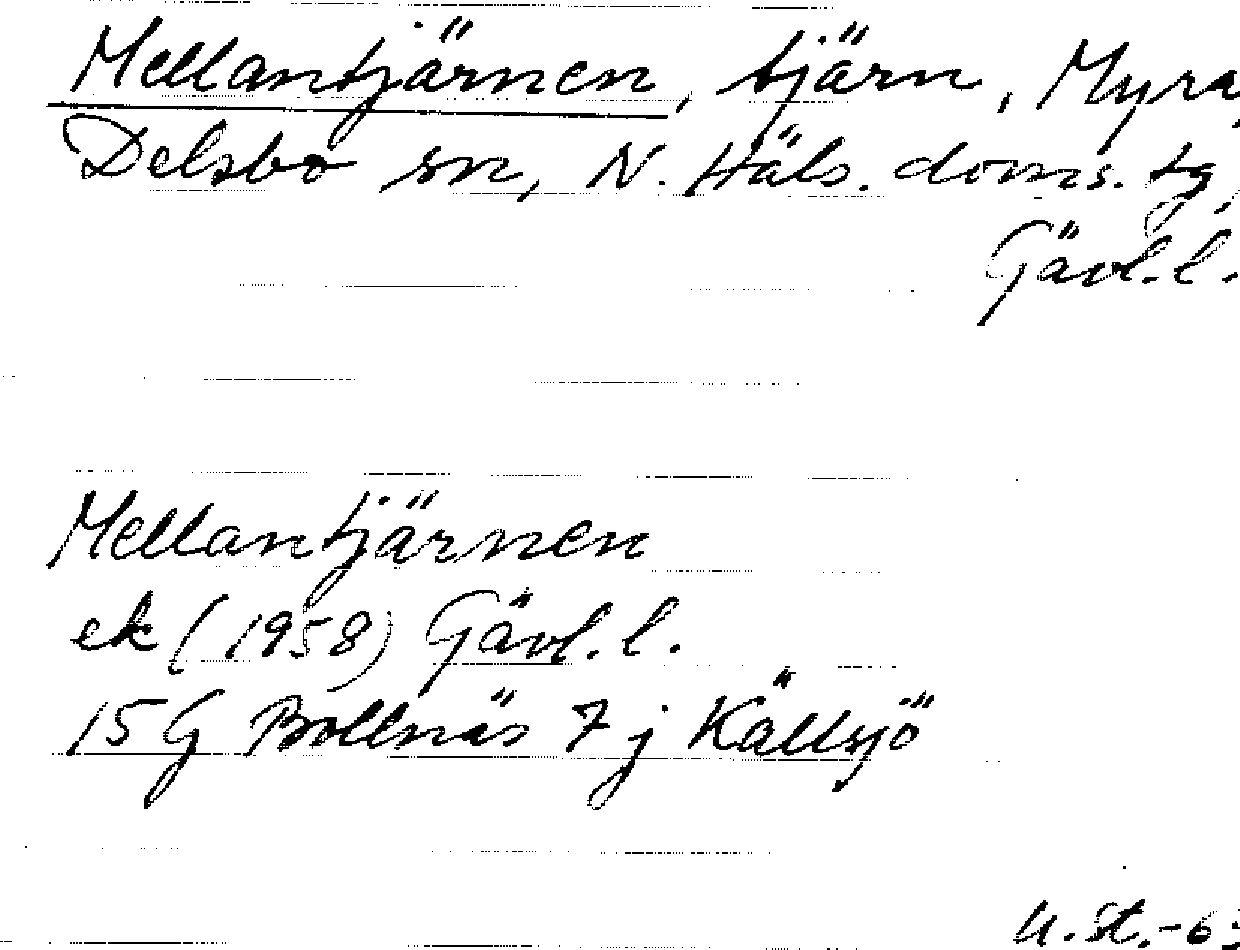 Mellantjärnen, tjärn, Myra,
Delsbo sn, N. Häls. doms. tg,
Gävl. l.
Mellantjärnen
ek (1958) Gävl. l.
15 G Bollnäs 7 j Källsjö
U. St. -63